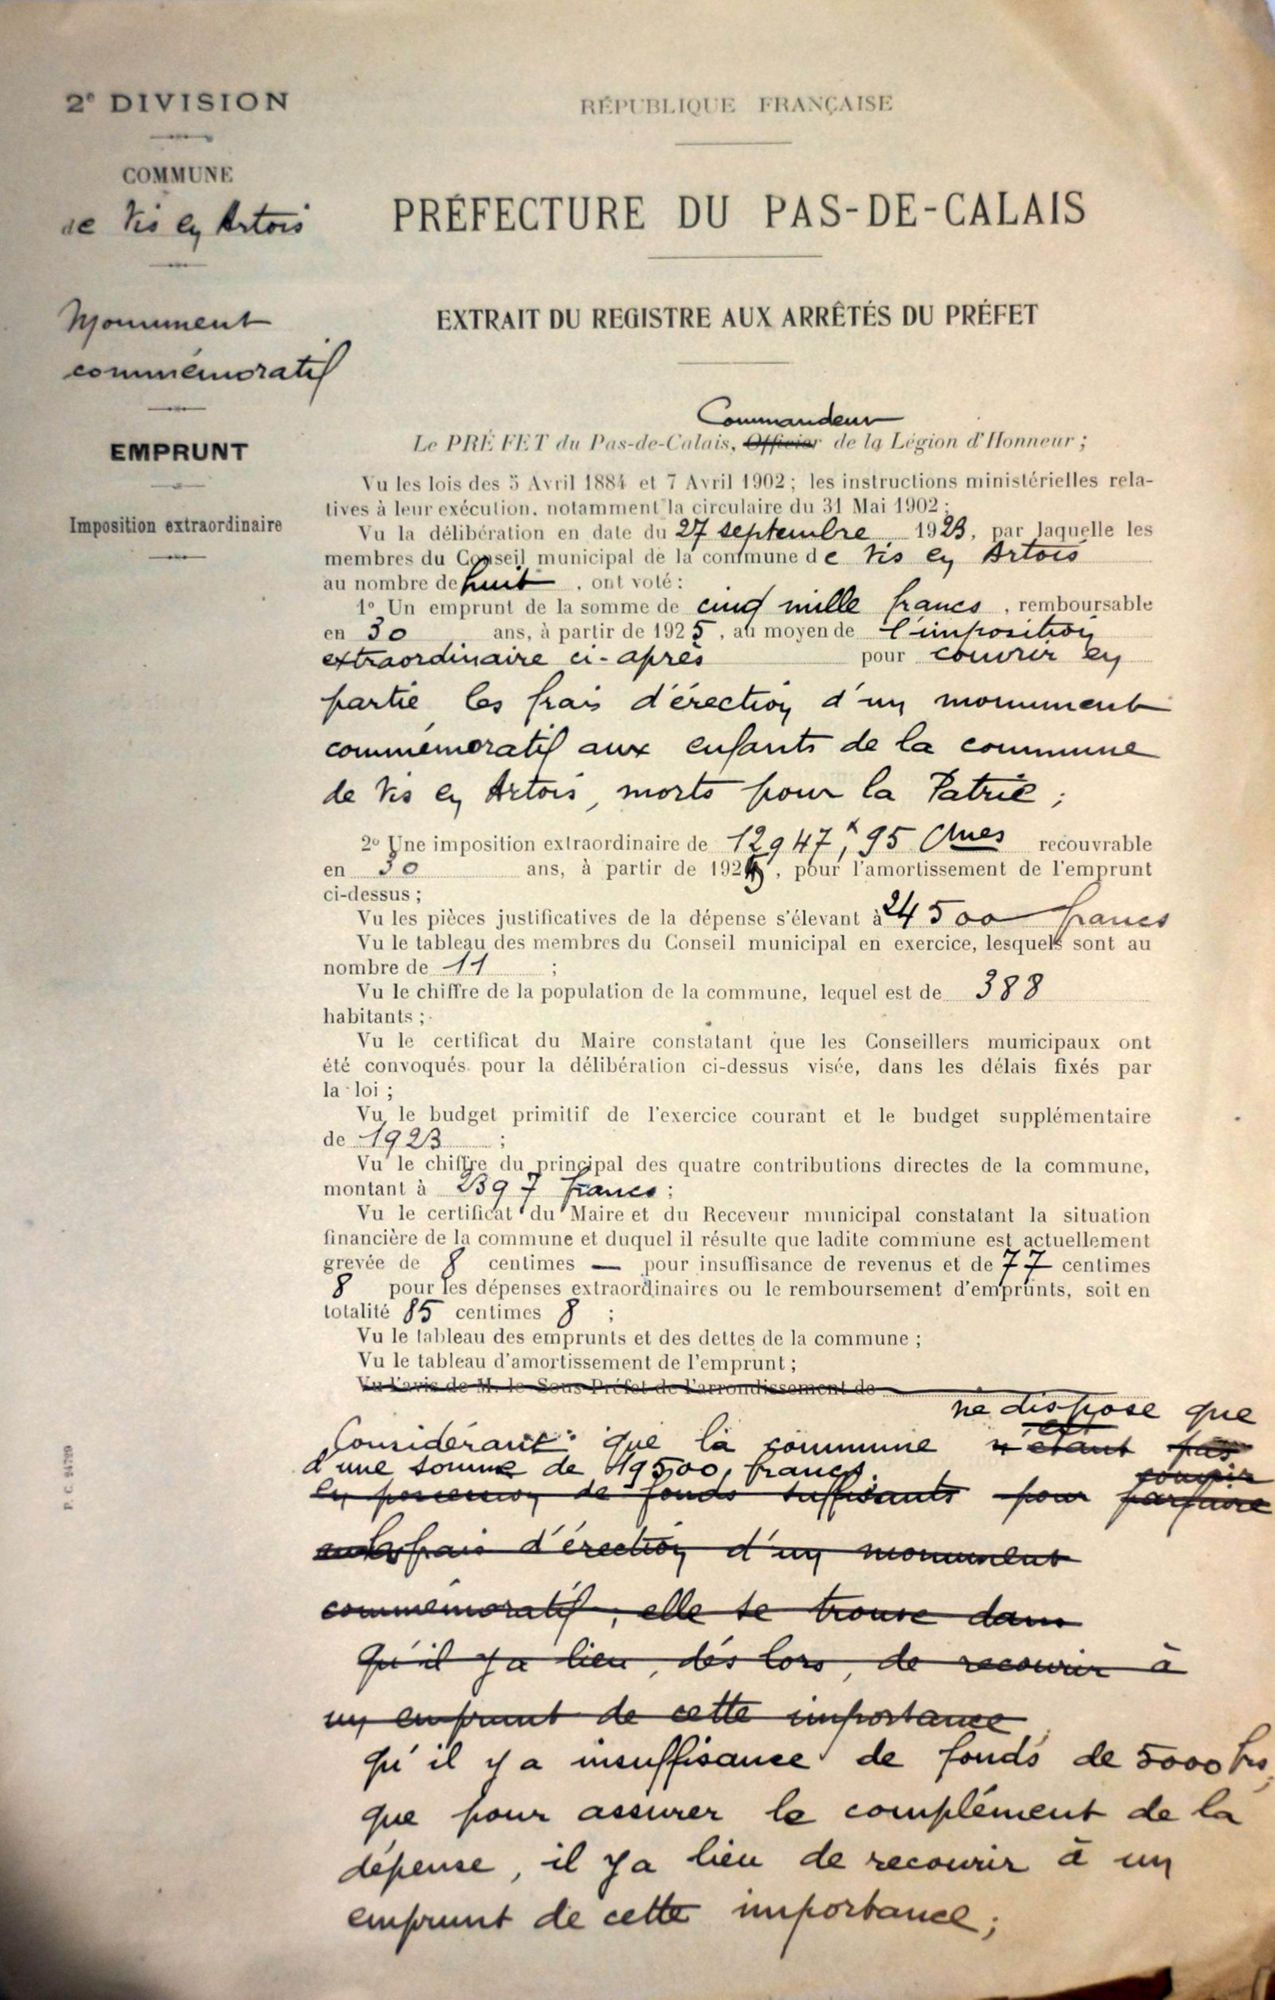 2e DIVISION
COMMUNE
de Vis en Artois
Monument
commémoratif
EMPRUNT
Imposition extraordinaire
RÉPUBLIQUE FRANÇAISE
PRÉFECTURE DU PAS-DE-CALAIS
EXTRAIT DU REGISTRE AUX ARRÊTÉS DU PRÉFET
Commandeur
Le PRÉFET du Pas-de-Calais, Officier de la Légion d'Honneur ;
Vu les lois des 5 Avril 1884 et 7 Avril 1902 ; les instructions ministérielles rela-
tives à leur exécution, notamment la circulaire du 31 Mai 1902 ;
Vu la délibération en date du 27 septembre 1923, par laquelle les
membres du Conseil municipal de la commune de Vis en Artois
au nombre de huit , ont voté :
1o Un emprunt de la somme de cinq mille francs , remboursable
en 30 ans, à partir de 1925, au moyen de l'imposition
extraordinaire ci-après pour couvrir en
partie les frais d'érection d'un monument
commémoratif aux enfants de la commune
de Vis en Artois, morts pour la Patrie ;
2o Une imposition extraordinaire de 12947,95 recouvrable
en 30 ans, à partir de 1925, pour l'amortissement de l'emprunt
ci-dessus ;
Vu les pièces justificatives de la dépense s'élevant à 24500 francs
Vu le tableau des membres du Conseil municipal en exercice, lesquels sont au
nombre de 11 ;
Vu le chiffre de la population de la commune, lequel est de 388
habitants ;
Vu le certificat du Maire constatant que les Conseillers municipaux ont
été convoqués pour la délibération ci-dessus visée, dans les délais fixés par
la loi ;
Vu le budget primitif de l'exercice courant et le budget supplémentaire
de 1923 ;
Vu le chiffre du principal des quatre contributions directes de la commune,
montant à 2397 francs ;
Vu le certificat du Maire et du Receveur municipal constatant la situation
financière de la commune et duquel il résulte que ladite commune est actuellement
grevée de 8 centimes — pour insuffisance de revenus et de 77 centimes
8 pour les dépenses extraordinaires ou le remboursement d'emprunts, soit en
totalité 85 centimes 8 ;
Vu le tableau des emprunts et des dettes de la commune ;
Vu le tableau d'amortissement de l'emprunt ;
Vu l'avis de M. le Sous-Préfet de l'arrondissement de
ne dispose que
Considérant que la commune n'étant pas
d'une somme de 19500 francs.
couvrir
en possession de fonds suffisants pour parfaire
frais d'érection d'un monument
commémoratif, elle se trouve dans
qu'il y a lieu, dès lors, de recourir à
un emprunt de cette importance
qu'il y a insuffisance de fonds de 5000 frs,
que pour assurer le complément de la
dépense, il y a lieu de recourir à un
emprunt de cette importance ;